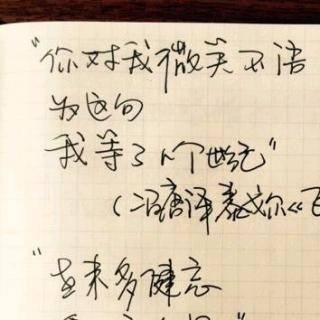 “你对我微笑不语
为这句
我等了几个世纪”
(冯唐译泰戈尔《飞
“老来多健忘